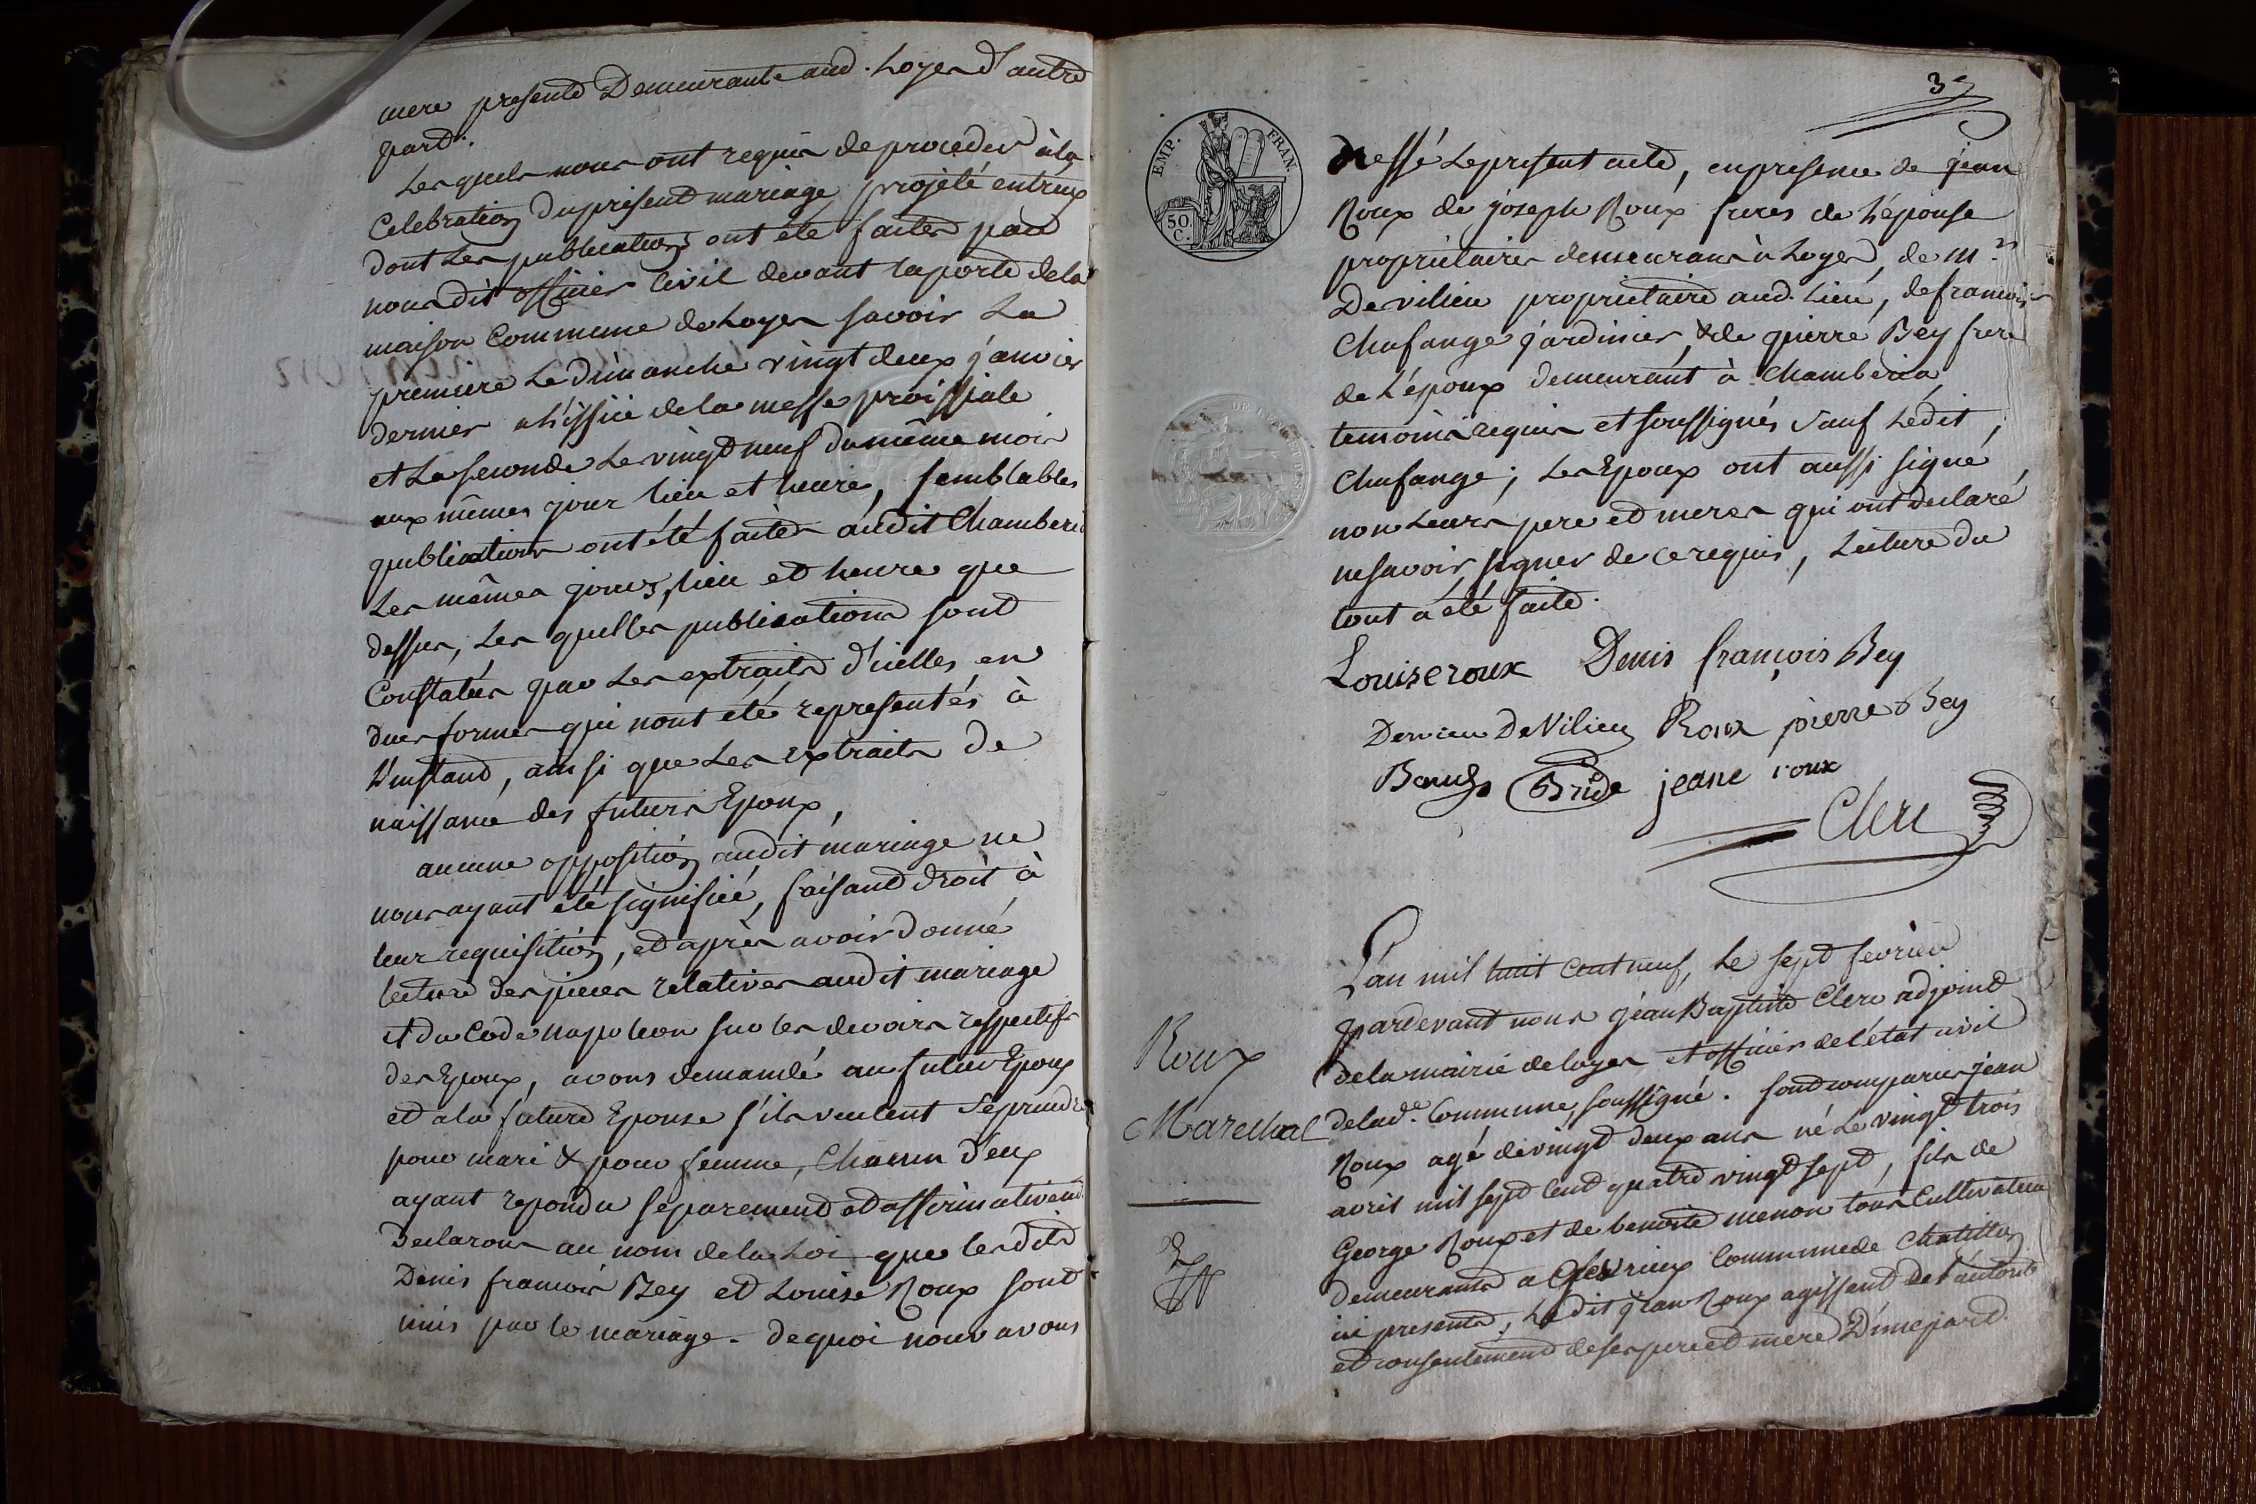 mere presente Demeurante aud. Loyes d'autre
part.
Lesquels nous ont requis de proceder à la
Celebration du présent mariage projeté entreux
dont Les publications ont été faites par
nous dit officier Civil devant la porte de la
maison Commune de Loyes savoir La
premiere Le dimanche vingt deux janvier
dernier a l'issüe de la messe
et La seconde Le vingt neuf du même mois
aux mêmes jour lieu et heure, semblables
publications ont été faites audit Chamberia
Les mêmes jours, lieu et heure que
dessus, Les quelles publications sont
Constatées par Les extraits d'icelles en
dues formes qui nont été representés à
L'instant, ainsi que Les extraits de
naissance des futurs Epoux,
aucune opposition audit mariage ne
nous ayant été signifiée, faisant droit à
leur requisition, et après avoir donné
lecture des pieces relatives audit mariage
et du Code napoleon sur les devoirs respectifs
des Epoux, avons demandé au futur Epoux
et a la future Epouse s'ils veulent se prendre
pour mari & pour femme, Chacun d'eux
ayant repondu separement et affirmativement
Declarons au nom de la Loi que lesdits
Denis francois Bey et Louise Roux sont
unis par le mariage. de quoi nous avons
3
EMP. FRAN.
50
C.
dressé Le present acte, en presence de jean
Roux de joseph Roux freres de L'épouse
propriétaires demeurans à Loyes, de Mr
De vilieu proprietaire aud. Lieu, de francois
Chafange jardinier, & de pierre Bey frere
de L'époux demeurant à Chamberia
temoins requis et soussignés sauf Ledit
Chafange; Les Epoux ont aussi signé
non Leurs pere et meres qui ont declaré
ne savoir signer de ce requis, Lecture du
tout a été faite.
Louise roux Denis françois Bey
DeVilieu Roux pierre Bey
Bride jeane roux
Clerc
L'an mil huit cent neuf, Le sept fevrier
pardevant nous jean Baptiste Clerc adjoint
de la mairie de loyes et officier de l'état civil
de lad.e Commune, soussigné. sont comparus jean
Roux agé de vingt deux ans né Le vingt trois
avril mil sept cent quatre vingt sept, fils de
George Roux et de benoite menon tous Cultivateurs
demeurants a Commune de Chatillon
ici presents, Ledit jean Roux agissant de l'autorité
et consentement de ses pere et mere D'une part.
Roux
Marechal